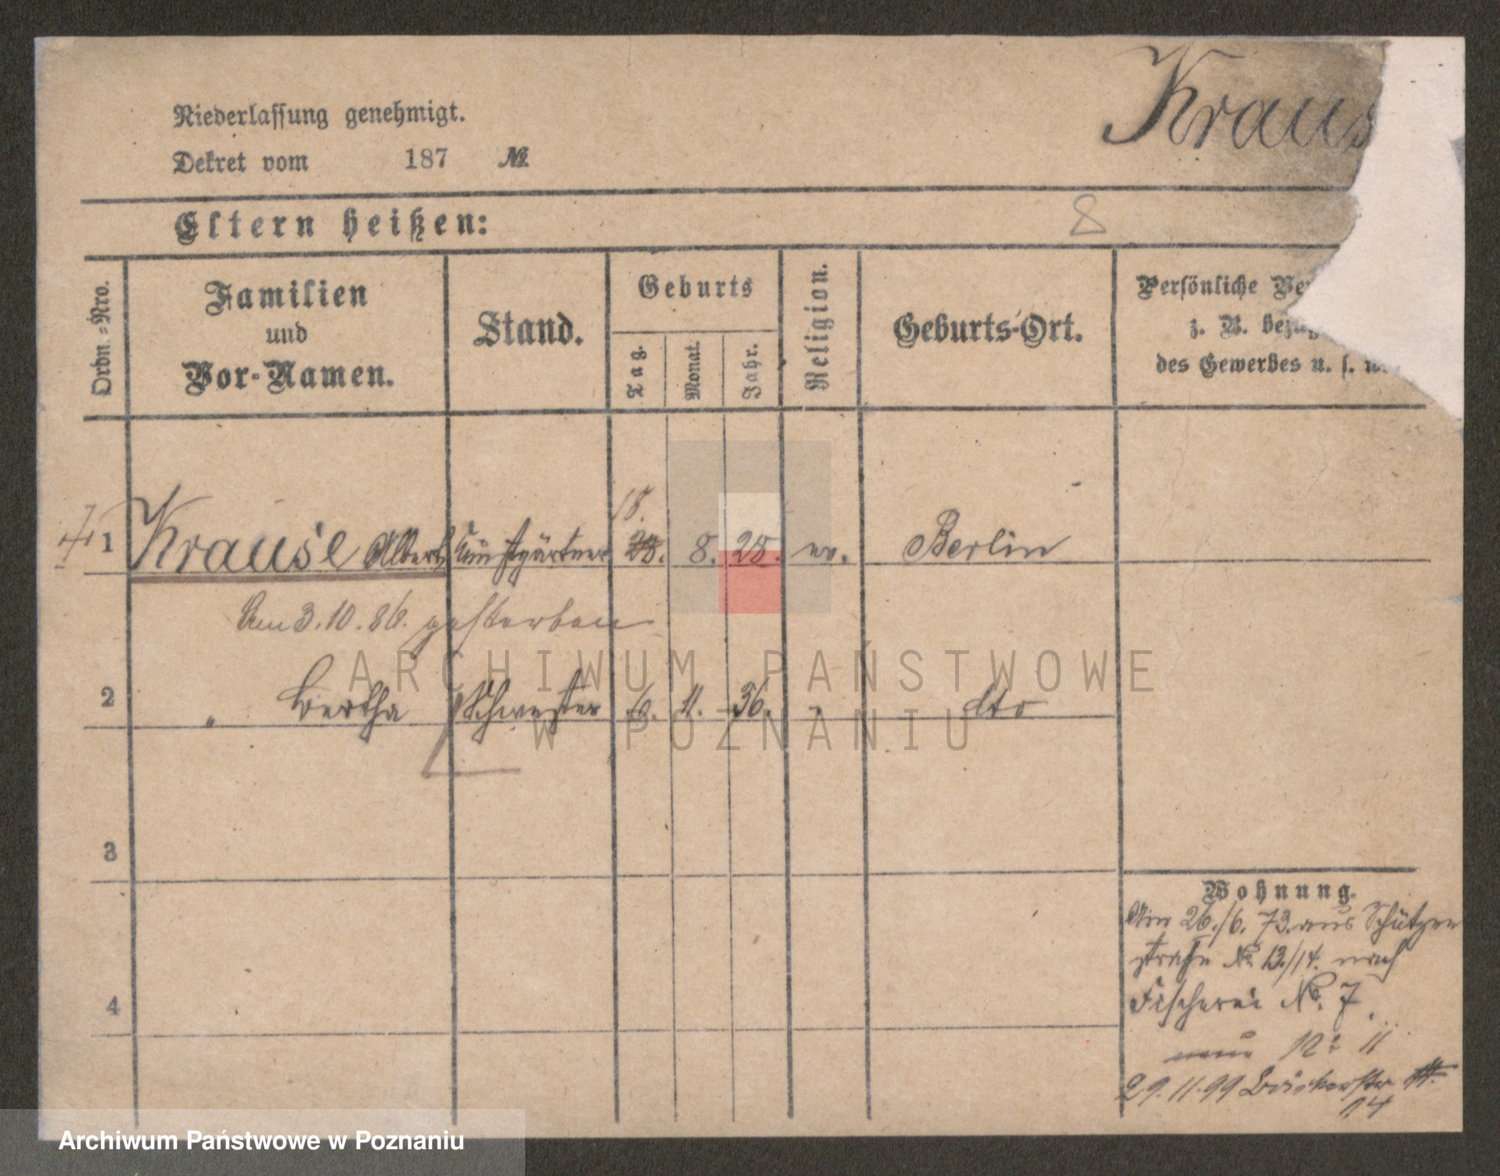 Kraus
Niederlassung genehmigt.
Dekret vom 187 №
Eltern heißen:
8
Ordn.-Nro.
Familien
und
Vor-Namen.
Stand.
Geburts
Tag.
Monat.
Jahr.
Religion.
Geburts-Ort.
Persönliche Ver
z. B. bezüg
des Gewerbes u. s. w.
1 Krause Albert Kunstgärtner 18. 8. 28. ev. Berlin
Am 3.10.86. gestorben
2 " Bertha Schwester 6. 11. 36. " dto
3
4
Wohnung.
Am 26./6. 73. aus Schützen
straße No. 13./14. nach
Fischerei No. 7.
11
29.11.99 Bäckerstr.
14
ARCHIWUM PAŃSTWOWE
W POZNANIU
Archiwum Państwowe w Poznaniu